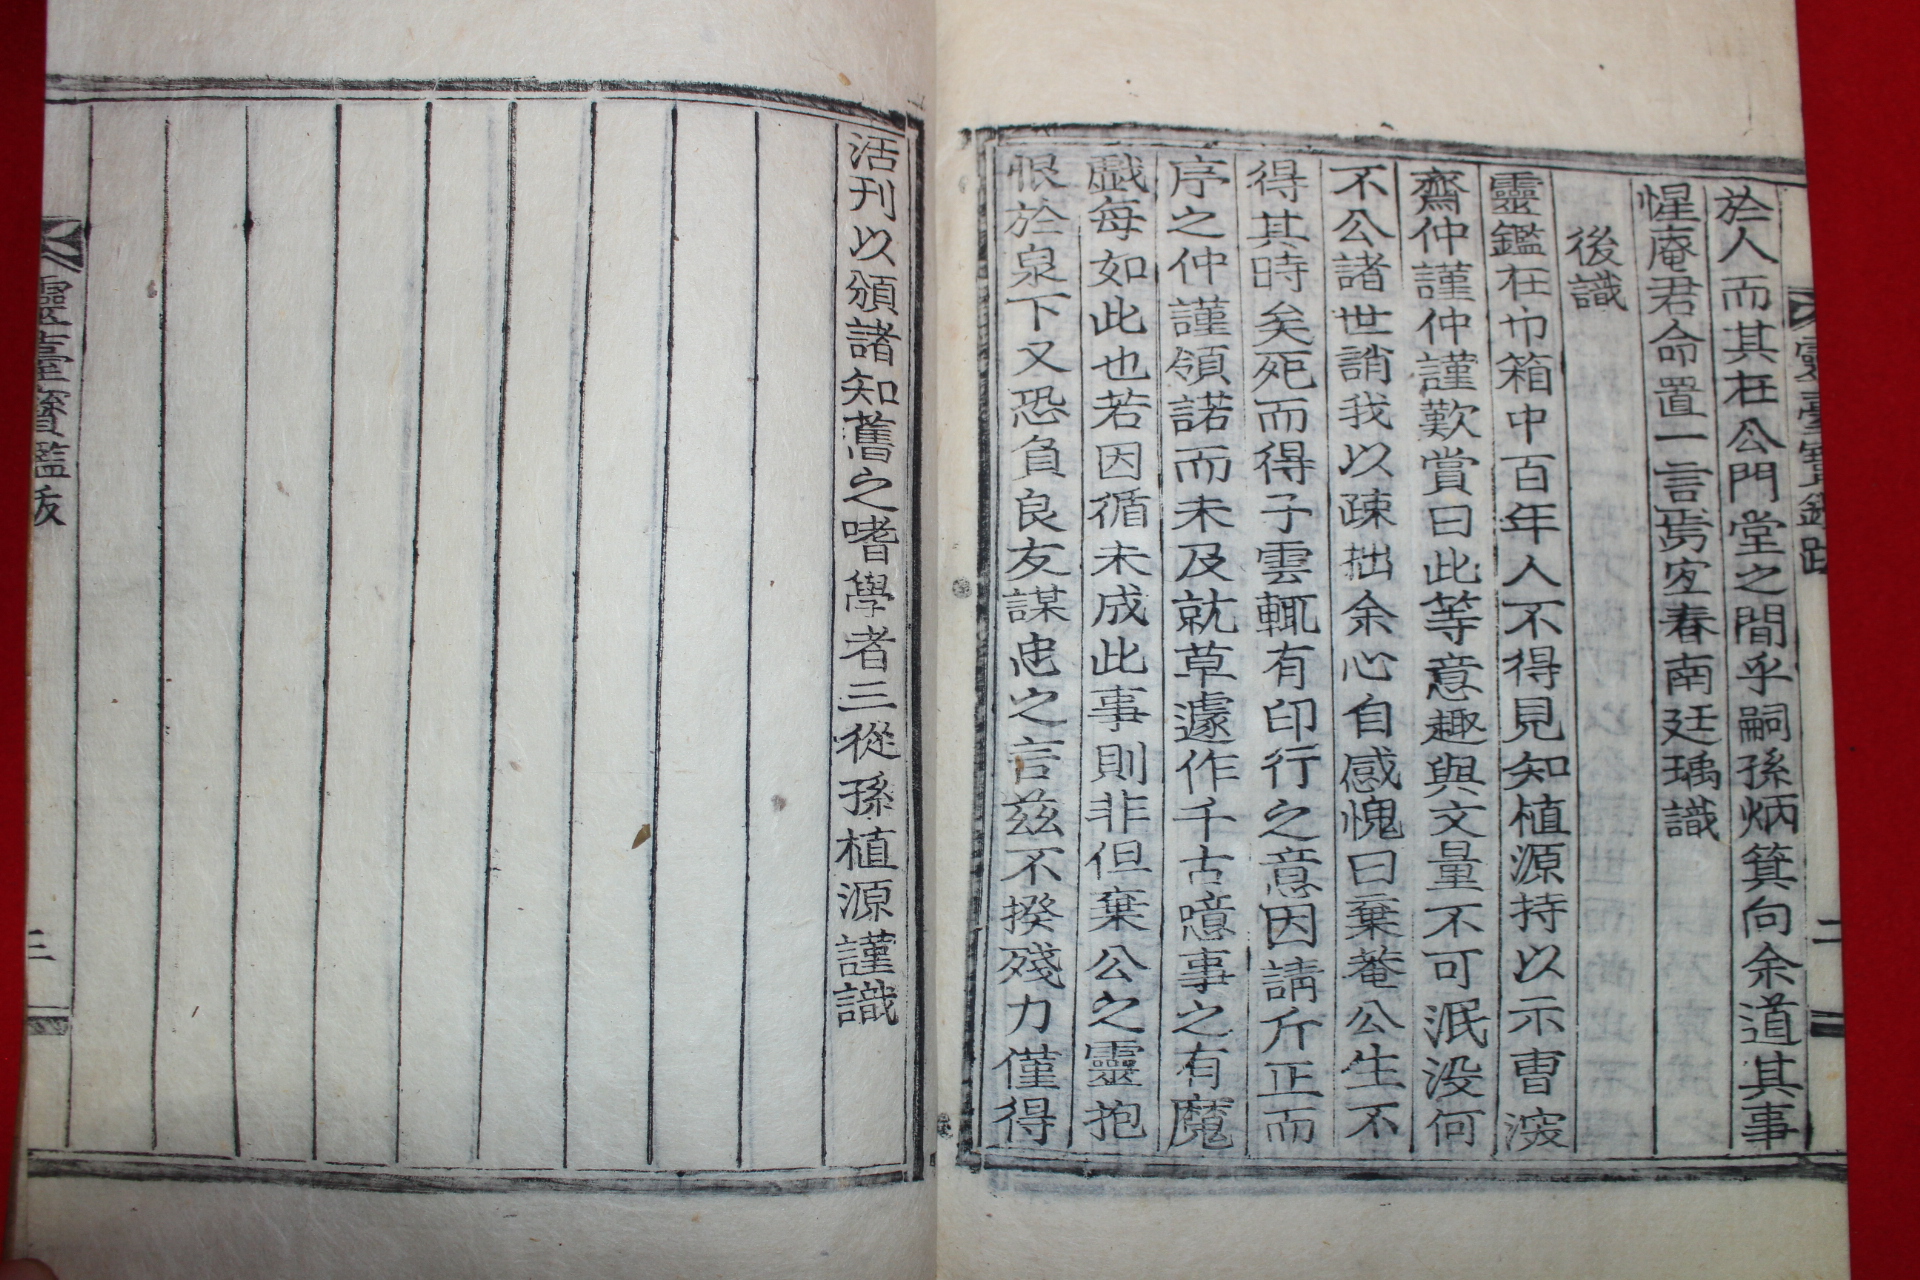 靈臺寶鑑跋
二
於人而其在公門堂之間乎嗣孫炳箕向余道其事
惺庵君命置一言焉宜春南廷瑀識
後識
靈鑑在巾箱中百年人不得見知植源持以示曺深
齋仲謹仲謹歎賞曰此等意趣與文量不可泯没何
不公諸世誚我以疎拙余心自感愧曰棄菴公生不
得其時矣死而得子雲輒有印行之意因請斤正而
序之仲謹領諾而未及就草遽作千古噫事之有魔
戲每如此也若因循未成此事則非但棄公之靈抱
恨於泉下又恐負良友謀忠之言茲不揆殘力僅得
活刊以頒諸知舊之嗜學者三從孫植源謹識
靈臺寶鑑跋
三